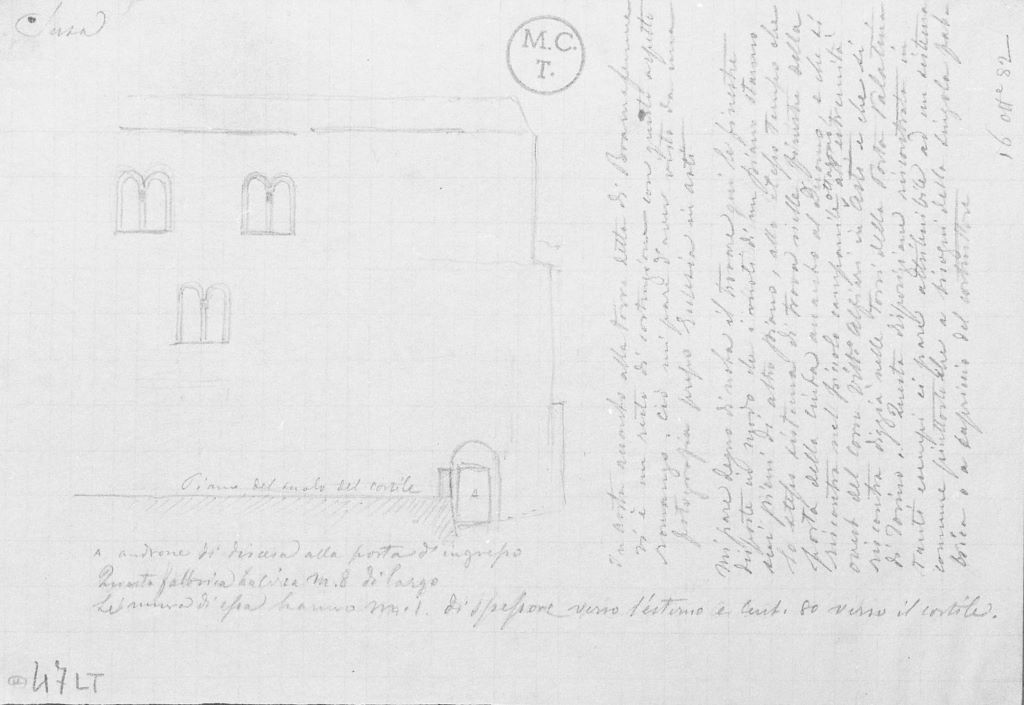 Susa
M. C.
T.
Piano del suolo del cortile
A
A androne di discesa alla porta di ingresso
Questa fabbrica ha circa m. 8 di largo
Le mura di essa hanno m. 1. di spessore verso l'esterno e cent. 80 verso il cortile.
47 LT
In Aosta accanto alla torre detta di Bramafam
vi è un resto di costruzione con questo aspetto
romano; ciò mi pare d'aver visto da una
fotografia presso
Mi pare degno di nota il trovare qui le finestre
disposte in modo che i vuoti di un piano stanno
sui pieni di altro piano, allo stesso tempo che
lo stesso sistema si trova nelle finestre della
porta della cinta accanto al Duomo e che si
riscontra nel piccolo campanile ottagono all'estremità
ovest del corso Vittorio Alfieri in Asti e che si
riscontra diggià nelle torri della Porta Palatina
di Torino. Questa disposizione riscontrata in
tanti esempi ci pare attribuibile ad un sistema
comune piuttosto che a bisogni della singola fab-
brica o a capriccio del costruttore
16 8bre 82